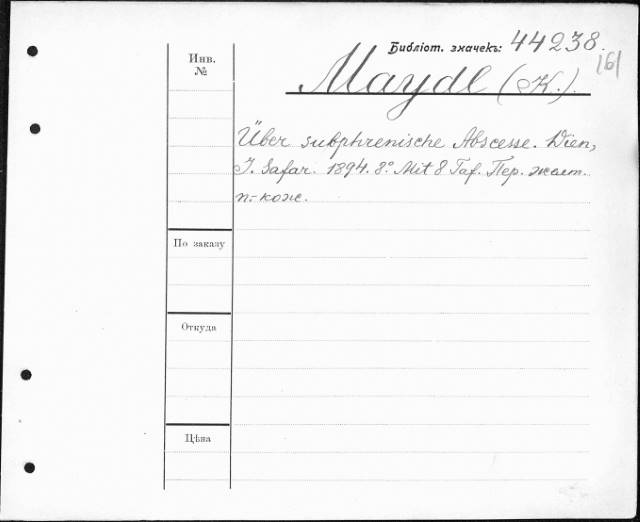 Библіот. значекъ: 44238.
161
Инв.
№
Maydl (K.).
Über subphrenische Abscesse. Wien,
J. Safar. 1894. 8º. Mit 8 Taf. Пер. желт.
п.-кож.
По заказу
Откуда
Цѣна